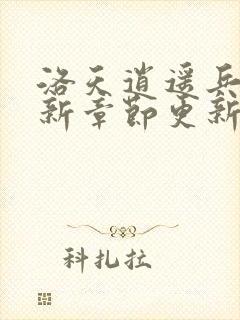 洛天逍遥兵
新章节更新
科扎拉